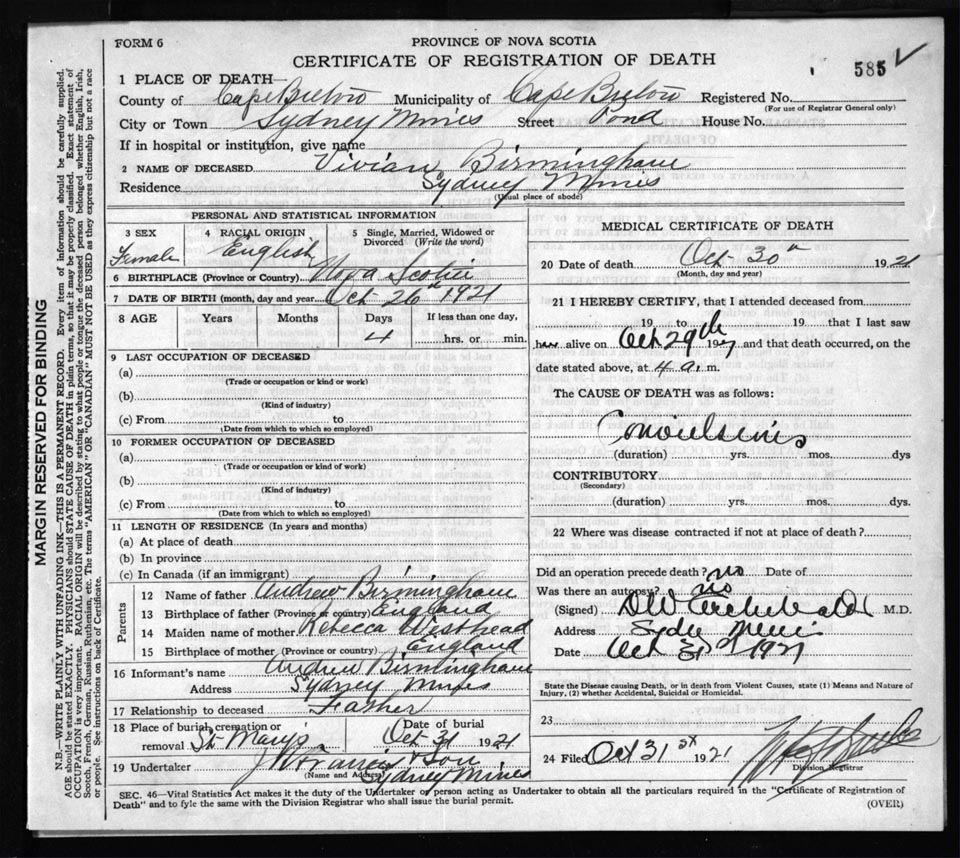 FORM 6
PROVINCE OF NOVA SCOTIA
CERTIFICATE OF REGISTRATION OF DEATH
585
1 PLACE OF DEATH—
County of Cape Breton Municipality of Cape Breton Registered No.
(For use of Registrar General only)
City or Town Sydney Mines Street Pond House No.
If in hospital or institution, give name
2 NAME OF DECEASED Vivian Birmingham
Residence Sydney Mines
(Usual place of abode)
PERSONAL AND STATISTICAL INFORMATION
3 SEX Female
4 RACIAL ORIGIN English
5 Single, Married, Widowed or Divorced (Write the word)
6 BIRTHPLACE (Province or Country) Nova Scotia
7 DATE OF BIRTH (month, day and year) Oct 26th 1921
8 AGE Years Months Days If less than one day,
4 hrs. or min.
9 LAST OCCUPATION OF DECEASED
(a)
(Trade or occupation or kind or work)
(b)
(Kind of industry)
(c) From to
(Date from which to which so employed)
10 FORMER OCCUPATION OF DECEASED
(a)
(Trade or occupation or kind of work)
(b)
(Kind of industry)
(c) From to
(Date from which to which so employed)
11 LENGTH OF RESIDENCE (In years and months)
(a) At place of death
(b) In province
(c) In Canada (if an immigrant)
Parents
12 Name of father Andrew Birmingham
13 Birthplace of father (Province or country) England
14 Maiden name of mother Rebecca Westhead
15 Birthplace of mother (Province or Country) England
16 Informant's name Andrew Birmingham
Address Sydney Mines
17 Relationship to deceased Father
18 Place of burial, cremation or removal St Marys
Date of burial Oct 31 1921
19 Undertaker & Son
(Name and Address) Sydney Mines
MEDICAL CERTIFICATE OF DEATH
20 Date of death Oct 30th 1921
(Month, day and year)
21 I HEREBY CERTIFY, that I attended deceased from
19 to 19 that I last saw
alive on Oct 29th 19 and that death occurred, on the
date stated above, at 4 a. m.
The CAUSE OF DEATH was as follows:
Convulsions
(duration) yrs. mos. dys
CONTRIBUTORY
(Secondary)
(duration) yrs. mos. dys.
22 Where was disease contracted if not at place of death?
Did an operation precede death? no Date of
Was there an autopsy? no
(Signed) M.D.
Address Sydney Mines
Date Oct 31st 1921
State the Disease causing Death, or in death from Violent Causes, state (1) Means and Nature of Injury, (2) whether Accidental, Suicidal or Homicidal.
23
24 Filed Oct 31st 1921
Division Registrar
SEC. 46—Vital Statistics Act makes it the duty of the Undertaker or person acting as Undertaker to obtain all the particulars required in the "Certificate of Registration of
Death" and to fyle the same with the Division Registrar who shall issue the burial permit.
(OVER)
MARGIN RESERVED FOR BINDING
N.B.—WRITE PLAINLY WITH UNFADING INK—THIS IS A PERMANENT RECORD. Every item of information should be carefully supplied.
AGE should be stated EXACTLY. PHYSICIANS should STATE CAUSE OF DEATH in plain terms, so that it may be properly classified. Exact statement of
OCCUPATION is very important. RACIAL ORIGIN will be described by stating to what people or tongue the deceased person belonged whether English, Irish,
Scotch, French, German, Russian, Ruthenian, etc. The terms "AMERICAN" OR "CANADIAN" MUST NOT BE USED as they express citizenship but not a race
or people. See instructions on back of Certificate.